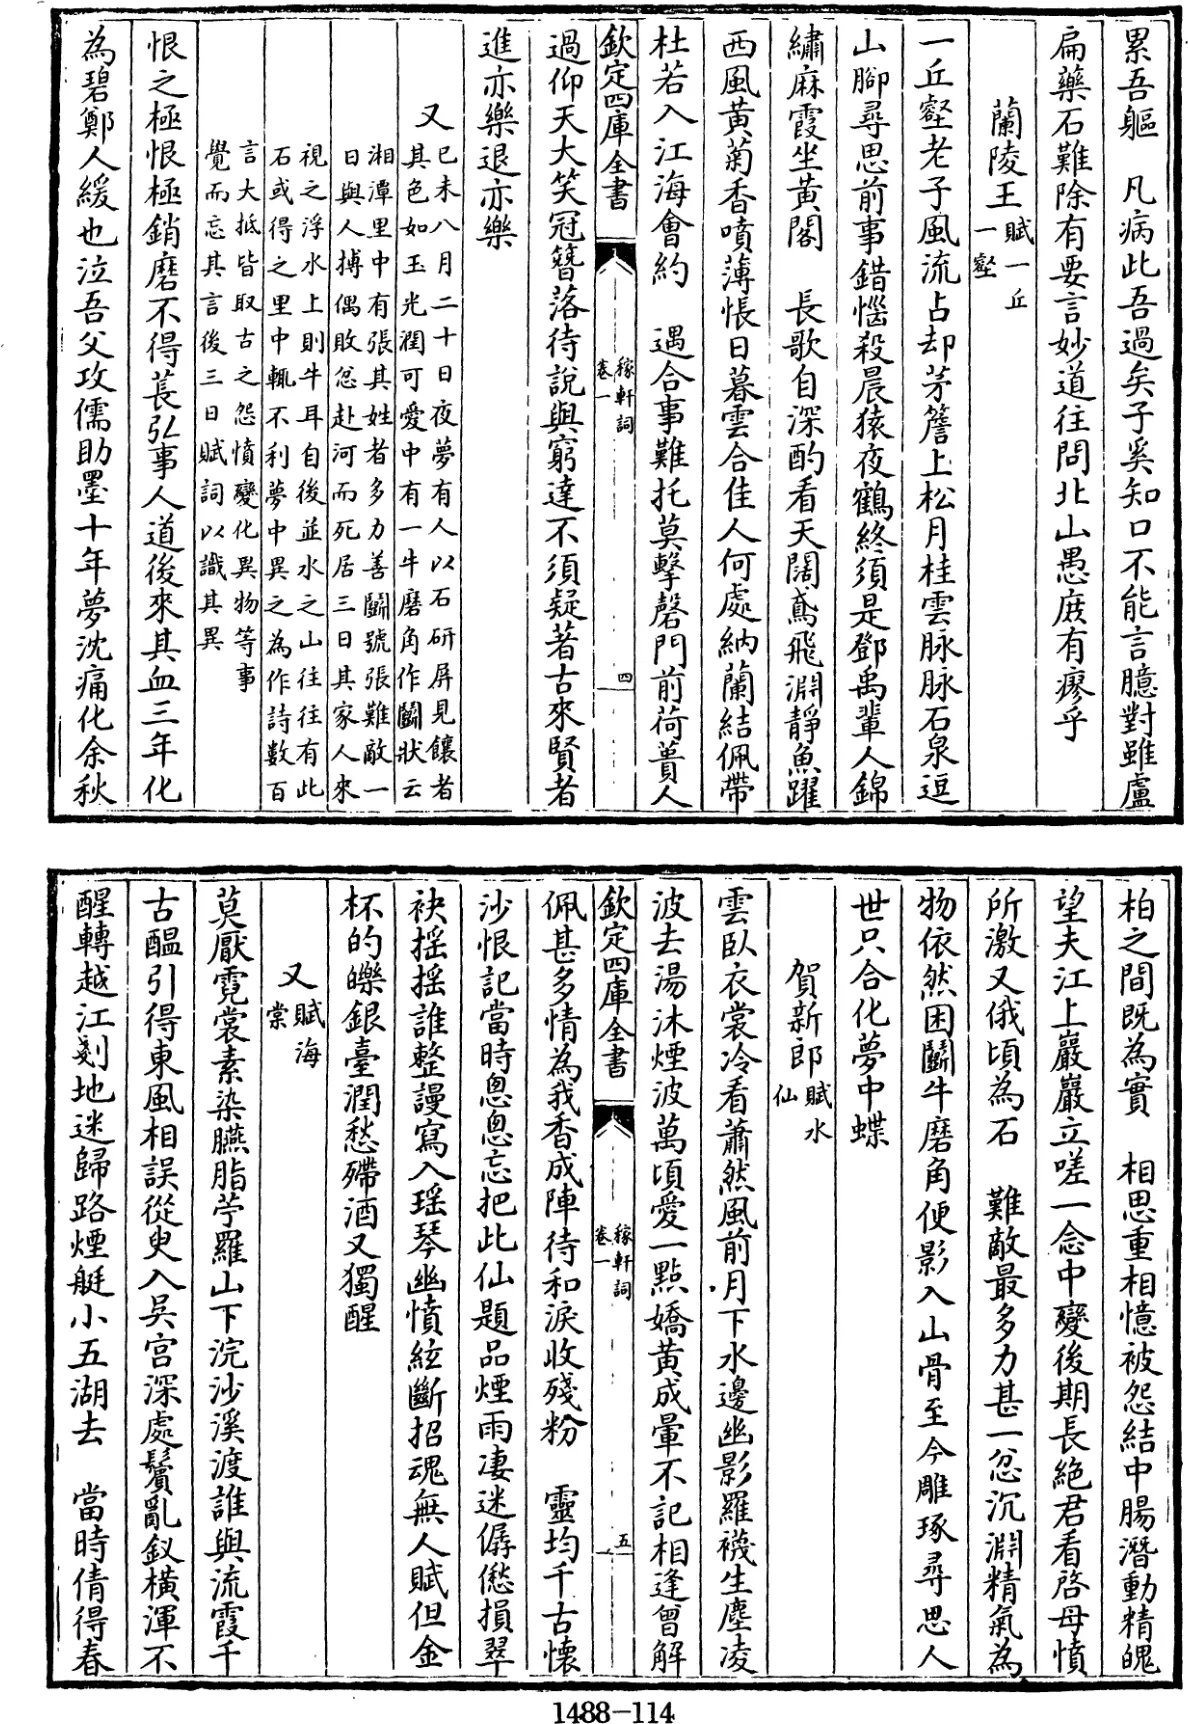 累吾軀　凡病此吾過矣子奚知口不能言臆對雖盧
扁藥石難除有要言妙道往問北山愚庻有瘳乎
蘭陵王賦一丘
一壑
一丘壑老子風流占却茅簷上松月桂雲脉脉石泉逗
山腳尋思前事錯惱殺晨猿夜鶴終須是鄧禹輩人錦
繡麻霞坐黃閣　長歌自深酌看天闊鳶飛淵靜魚躍
西風黃菊香噴薄悵日暮雲合佳人何處納蘭結佩帶
杜若入江海會約　遇合事難托莫擊磬門前荷蕢人
欽定四庫全書
稼軒詞
卷一
四
過仰天大笑冠簪落待說與窮達不須疑著古來賢者
進亦樂退亦樂
又已未八月二十日夜夢有人以石研屏見饟者
其色如玉光潤可愛中有一牛磨角作鬭狀云
湘潭里中有張其姓者多力善鬭號張難敵一
日與人搏偶敗忿赴河而死居三日其家人來
視之浮水上則牛耳自後並水之山往往有此
石或得之里中輒不利夢中異之為作詩數百
言大抵皆取古之怨憤變化異物等事
覺而忘其言後三日賦詞以識其異
恨之極恨極銷磨不得萇弘事人道後來其血三年化
為碧鄭人緩也泣吾父攻儒助墨十年夢沈痛化余秋
柏之間既為實　相思重相憶被怨結中腸潛動精魄
望夫江上巖巖立嗟一念中變後期長絶君看啓母憤
所激又俄頃為石　難敵最多力甚一忿沉淵精氣為
物依然困鬭牛磨角便影入山骨至今雕琢尋思人
世只合化夢中蝶
賀新郎賦水
仙
雲臥衣裳冷看蕭然風前月下水邊幽影羅襪生塵凌
波去湯沐煙波萬頃愛一點嬌黃成暈不記相逢曾解
欽定四庫全書
稼軒詞
卷一
五
佩甚多情為我香成陣待和淚收殘粉　靈均千古懷
沙恨記當時怱怱忘把此仙題品煙雨凄迷僝僽損翠
袂摇摇誰整謾寫入瑶琴幽憤絃斷招魂無人賦但金
杯的皪銀臺潤愁殢酒又獨醒
又賦海
棠
莫厭霓裳素染臙脂苧羅山下浣沙溪渡誰與流霞千
古醖引得東風相誤從臾入吳宮深處鬢亂釵橫渾不
醒轉越江剗地迷歸路煙艇小五湖去　當時倩得春
1488—114